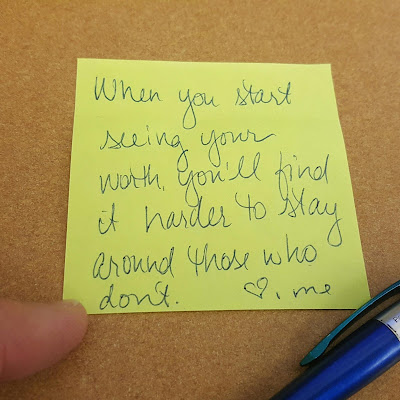 When you start
seeing your
worth, you'll find
it harder to stay
around those who
don't. ♡, me